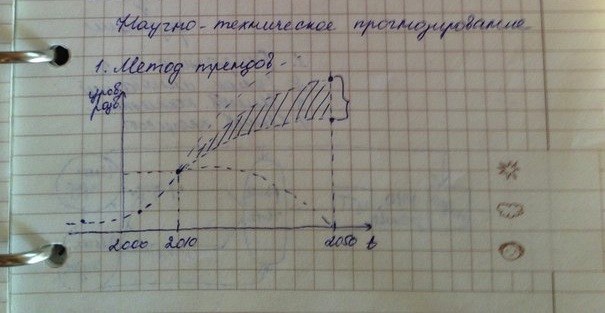 Научно-техническое прогнозирование
1. Метод трендов
уров.
разв.
2000 2010 2050 t